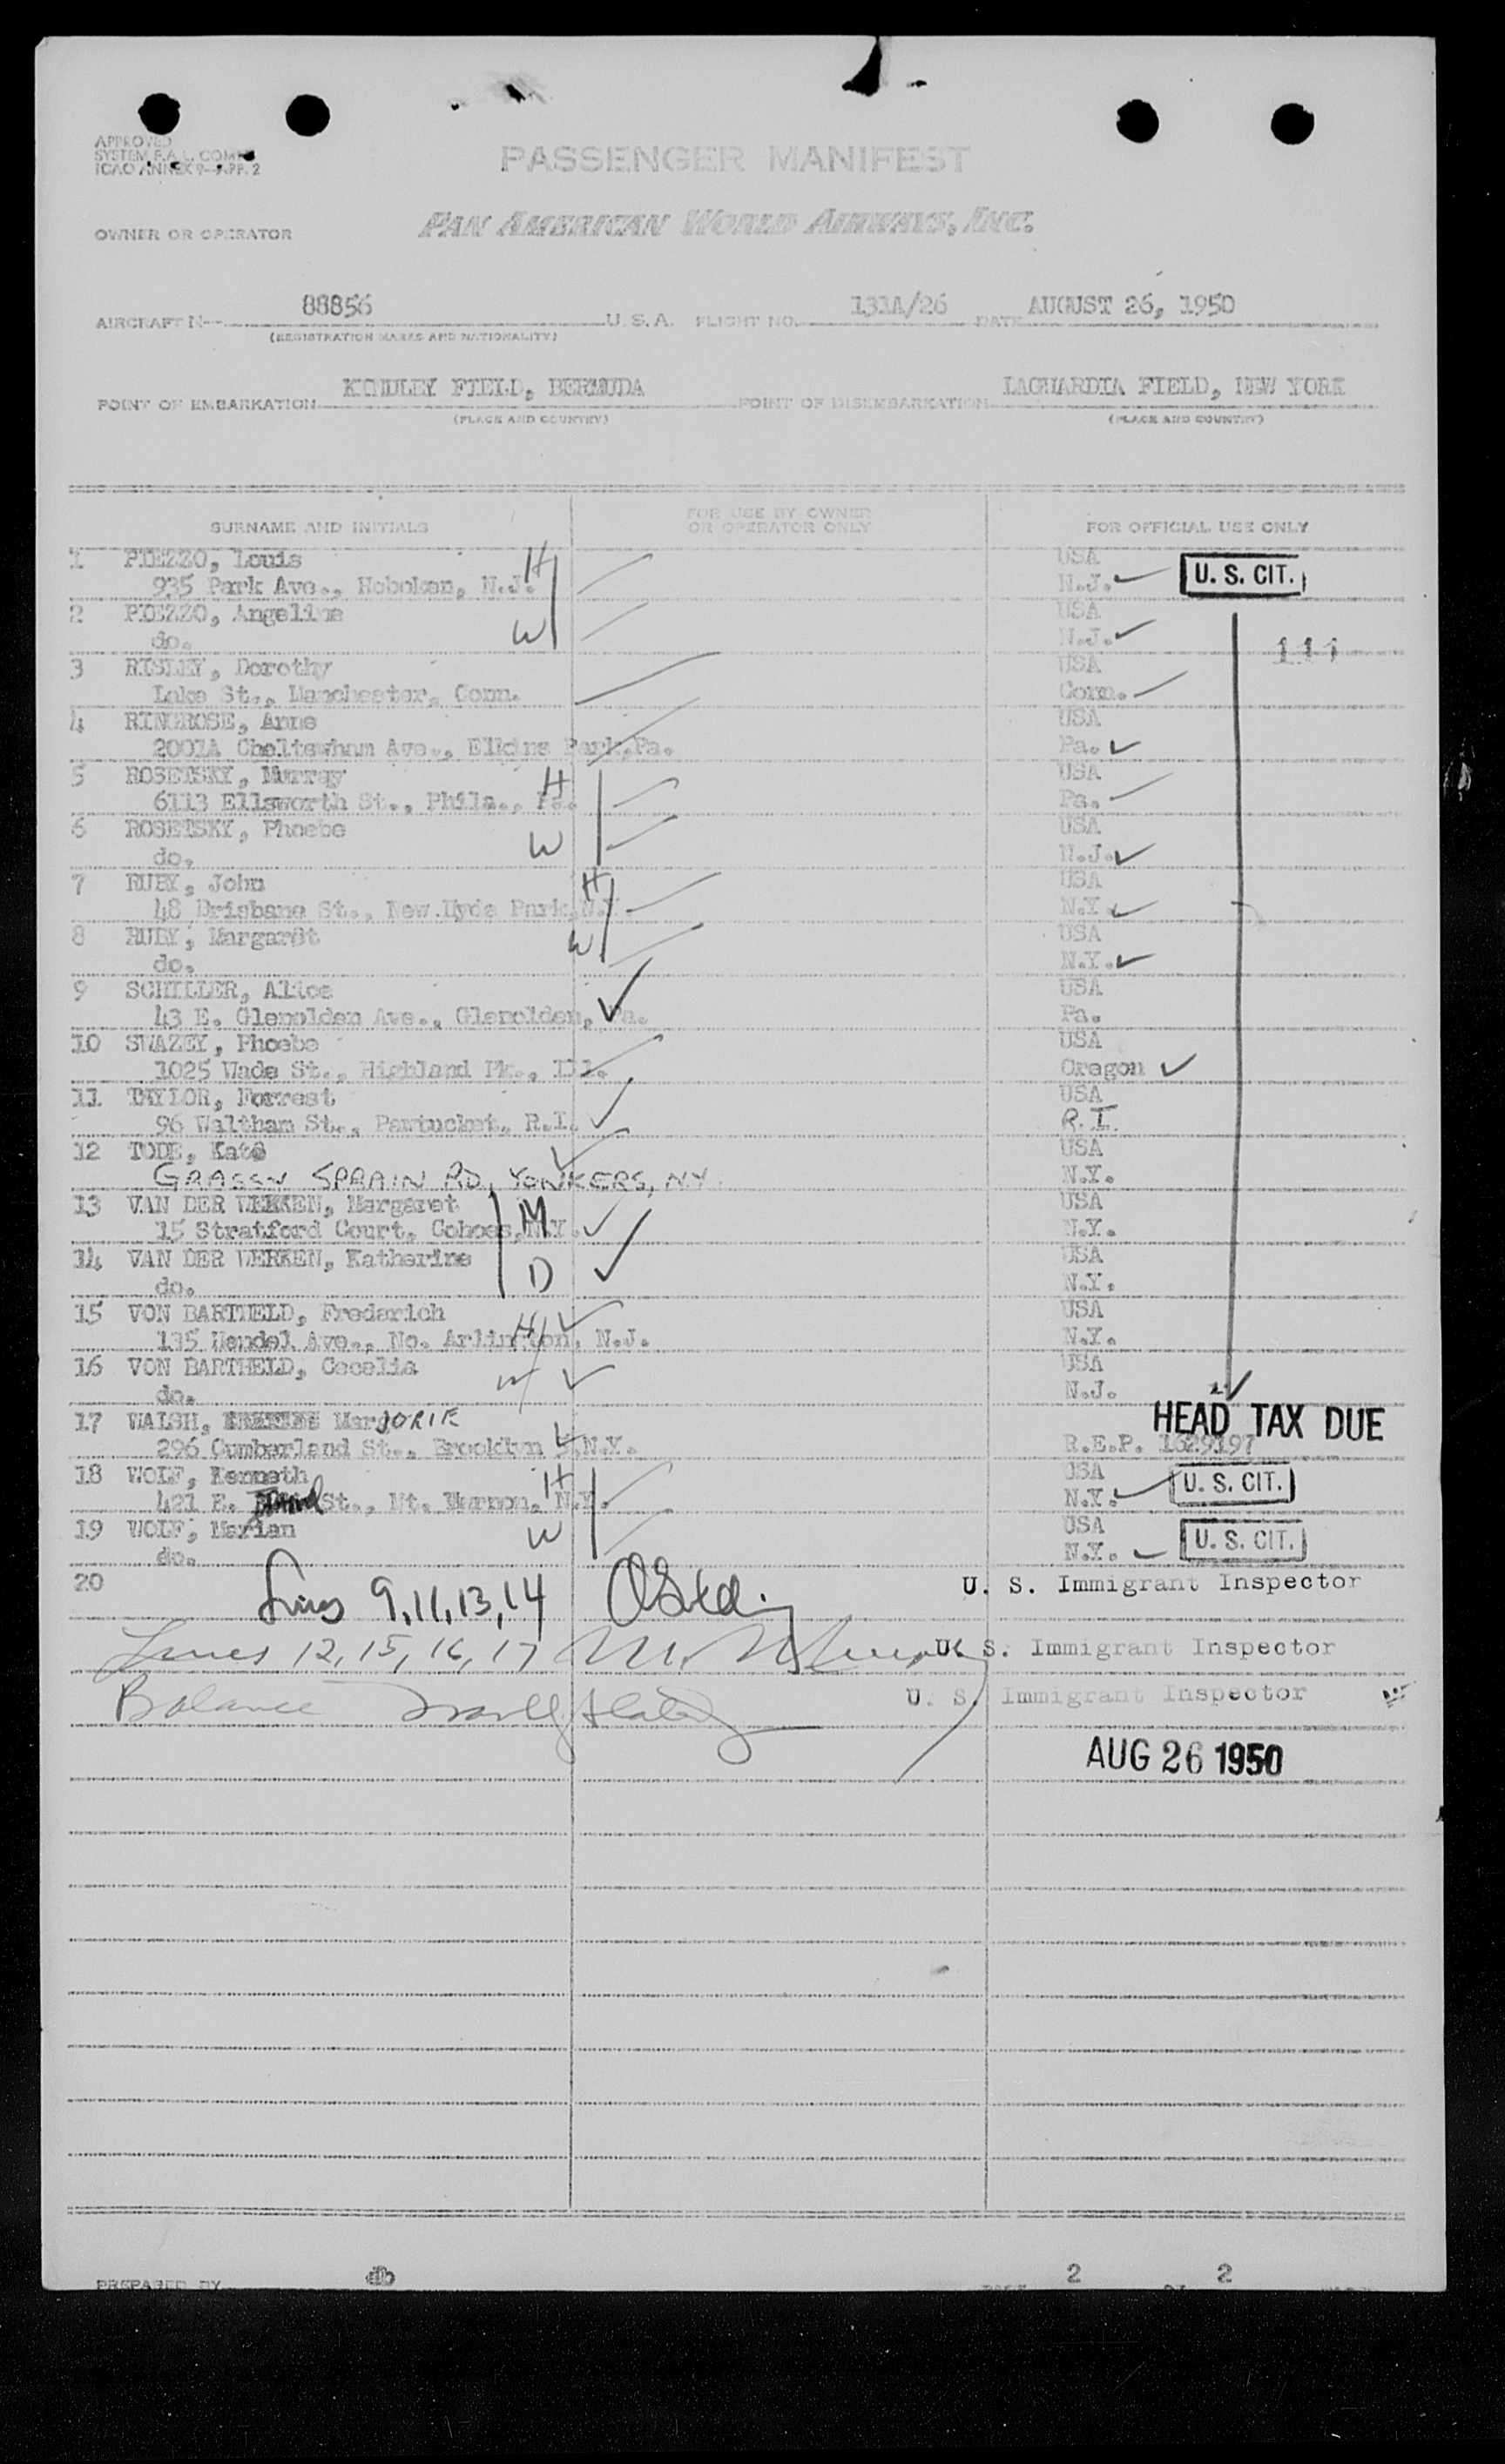 APPROVED
SYSTEM F.A.L. COM
ICAO ANNEX 9—APP. 2
PASSENGER MANIFEST
OWNER OR OPERATOR PAN AMERICAN WORLD AIRWAYS, INC.
AIRCRAFT N— 88856 U. S. A. FLIGHT NO. 131A/26 DATE AUGUST 26, 1950
(REGISTRATION MARKS AND NATIONALITY)
POINT OF EMBARKATION KINDLEY FIELD, BERMUDA POINT OF DISEMBARKATION LAGUARDIA FIELD, NEW YORK
(PLACE AND COUNTRY) (PLACE AND COUNTRY)
SURNAME AND INITIALS FOR USE BY OWNER OR OPERATOR ONLY FOR OFFICIAL USE ONLY
1 PIEZZO, Louis H USA
935 Park Ave., Hoboken, N.J. N.J. U. S. CIT.
2 PIEZZO, Angelina USA
do. W N.J. 111
3 RISLEY, Dorothy USA
Lake St., Manchester, Conn. Conn.
4 RINGROSE, Anne USA
2001A Cheltewham Ave., Elkins Park, Pa. Pa.
5 ROSETSKY, Murray H USA
6113 Ellsworth St., Phila., Pa. Pa.
6 ROSETSKY, Phoebe USA
do. W N.J.
7 RUBY, John H USA
48 Brisbane St., New Hyde Park, N.Y. N.Y.
8 RUBY, Margaret W USA
do. N.Y.
9 SCHILLER, Alice USA
43 E. Glenolden Ave., Glenolden, Pa. Pa.
10 SWAZEY, Phoebe USA
1025 Wade St., Highland Pk., Ill. Oregon
11 TAYLOR, Forrest USA
96 Waltham St., Pawtucket, R.I. R.I.
12 TODE, Kate USA
GRASSY SPRAIN RD, YONKERS, NY. N.Y.
13 VAN DER WERKEN, Margaret M USA
15 Stratford Court, Cohoes, N.Y. N.Y.
14 VAN DER WERKEN, Katherine D USA
do. N.Y.
15 VON BARTHELD, Frederich H USA
135 Hendel Ave., No. Arlington, N.J. N.Y.
16 VON BARTHELD, Cecelia W USA
do. N.J.
17 WALSH, MarJORIE HEAD TAX DUE
296 Cumberland St., Brooklyn 5, N.Y. R.E.P. 1629197
18 WOLF, Kenneth H USA U. S. CIT.
421 E. St., Mt. Vernon, N.Y. N.Y.
19 WOLF, Marian W USA U. S. CIT.
do. N.Y.
20 U. S. Immigrant Inspector
Lines 9,11,13,14
Lines 12, 15, 16, 17 U. S. Immigrant Inspector
Balance U. S. Immigrant Inspector
AUG 26 1950
PREPARED BY PAGE 2 OF 2